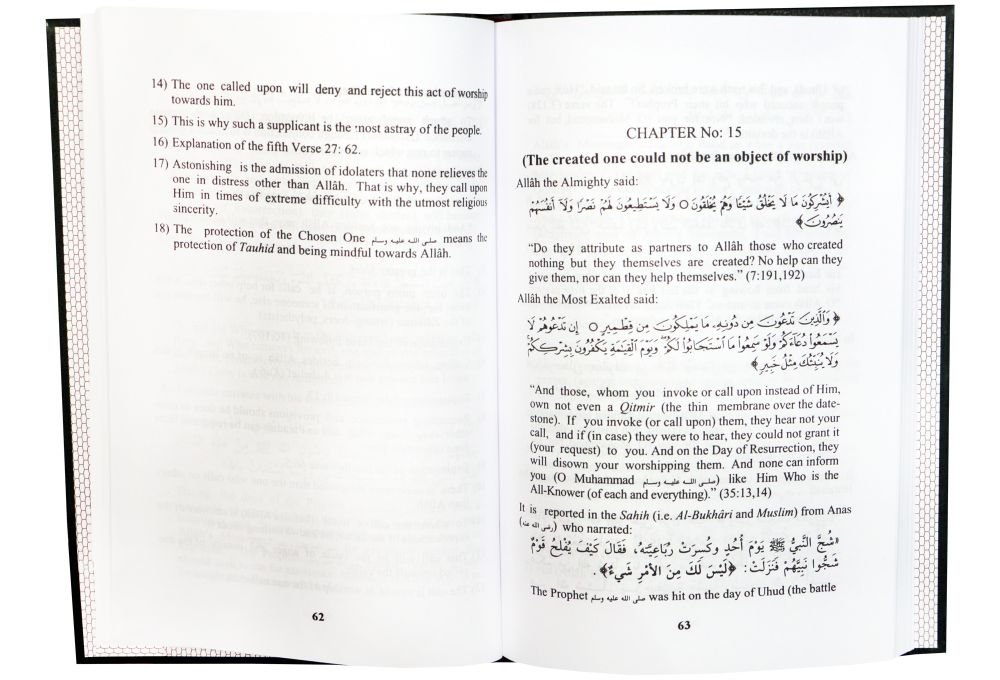 14) The one called upon will deny and reject this act of worship
towards him.
15) This is why such a supplicant is the most astray of the people.
16) Explanation of the fifth Verse 27: 62.
17) Astonishing is the admission of idolaters that none relieves the
one in distress other than Allâh. That is why, they call upon
Him in times of extreme difficulty with the utmost religious
sincerity.
18) The protection of the Chosen One صلى الله عليه وسلم means the
protection of Tauhid and being mindful towards Allâh.
62
CHAPTER No: 15
(The created one could not be an object of worship)
Allâh the Almighty said:
﴿ أَيُشْرِكُونَ مَا لَا يَخْلُقُ شَيْئًا وَهُمْ يُخْلَقُونَ ○ وَلَا يَسْتَطِيعُونَ لَهُمْ نَصْرًا وَلَا أَنفُسَهُمْ
يَنصُرُونَ ﴾
“Do they attribute as partners to Allâh those who created
nothing but they themselves are created? No help can they
give them, nor can they help themselves.” (7:191,192)
Allâh the Most Exalted said:
﴿ وَالَّذِينَ تَدْعُونَ مِن دُونِهِ مَا يَمْلِكُونَ مِن قِطْمِيرٍ ○ إِن تَدْعُوهُمْ لَا
يَسْمَعُوا دُعَاءَكُمْ وَلَوْ سَمِعُوا مَا اسْتَجَابُوا لَكُمْ وَيَوْمَ الْقِيَامَةِ يَكْفُرُونَ بِشِرْكِكُمْ
وَلَا يُنَبِّئُكَ مِثْلُ خَبِيرٍ ﴾
“And those, whom you invoke or call upon instead of Him,
own not even a Qitmir (the thin membrane over the date-
stone). If you invoke (or call upon) them, they hear not your
call, and if (in case) they were to hear, they could not grant it
(your request) to you. And on the Day of Resurrection, they
will disown your worshipping them. And none can inform
you (O Muhammad صلى الله عليه وسلم) like Him Who is the
All-Knower (of each and everything).” (35:13,14)
It is reported in the Sahih (i.e. Al-Bukhâri and Muslim) from Anas
(رضي الله عنه) who narrated:
«شُجَّ النَّبِيُّ ﷺ يَوْمَ أُحُدٍ وَكُسِرَتْ رُبَاعِيَتُهُ، فَقَالَ كَيْفَ يُفْلِحُ قَوْمٌ
شَجُّوا نَبِيَّهُمْ فَنَزَلَتْ: ﴿لَيْسَ لَكَ مِنَ الْأَمْرِ شَيْءٌ﴾.
The Prophet صلى الله عليه وسلم was hit on the day of Uhud (the battle
63